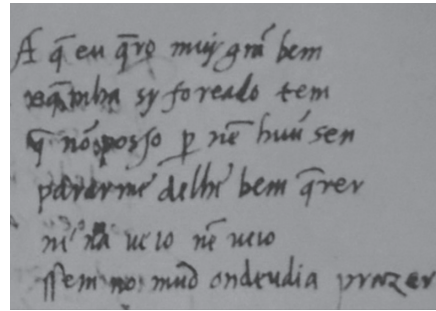 A q̄ eu q̄ro muy grã bem
eq̄ mha sy foreado tem
q̄ nõ posso ꝑ nẽ huũ sen
pararme delhe bem q̄rer
ueio nẽ ueio
ssem no mũd ondeudia prazer